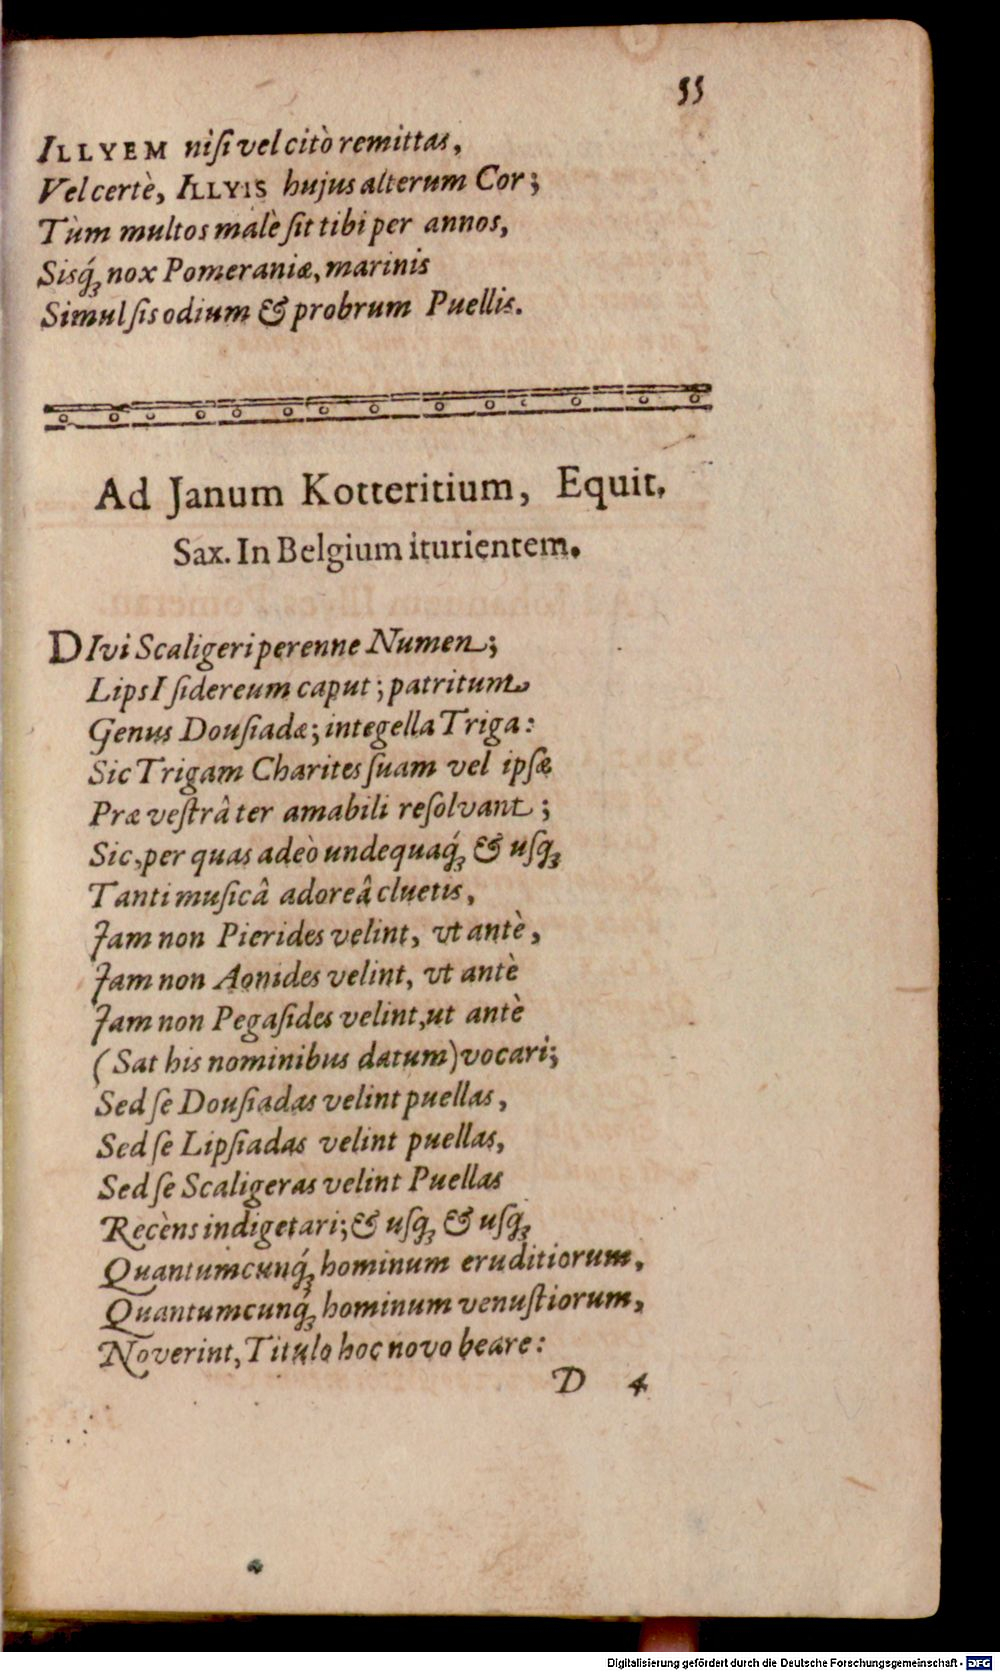 55
ILLYEM niſi vel citò remittas,
Vel certè, ILLYIS hujus alterum Cor;
Tùm multos malè ſit tibi per annos,
Sisq́; nox Pomeraniæ, marinis
Simul ſis odium & probrum Puellis.
Ad Janum Kotteritium, Equit.
Sax. In Belgium iturientem.
DIvi Scaligeri perenne Numen;
LipsI ſidereum caput; patritum
Genus Douſiadæ; integella Triga:
Sic Trigam Charites ſuam vel ipſæ
Præ veſtrâ ter amabili reſolvant;
Sic, per quas adeò undequaq́; & uſq;
Tanti muſicâ adoreâ cluetis,
Jam non Pierides velint, vt antè,
Jam non Aonides velint, vt antè
Jam non Pegaſides velint, ut antè
(Sat his nominibus datum) vocari;
Sed ſe Douſiadas velint puellas,
Sed ſe Lipſiadas velint puellas,
Sed ſe Scaligeras velint Puellas
Recèns indigetari; & uſq; & uſq́;
Quantumcunq́; hominum eruditiorum,
Quantumcunq́; hominum venuſtiorum,
Noverint, Titulo hoc novo beare:
D 4
Digitalisierung gefördert durch die Deutsche Forschungsgemeinschaft - DFG